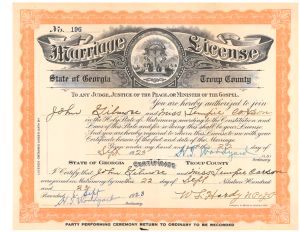 No. 196
Marriage License
State of Georgia Troup County
TO ANY JUDGE, JUSTICE OF THE PEACE, OR MINISTER OF THE GOSPEL:
You are hereby authorized to join
John Gilmore and Miss Tempie
in the Holy State of Matrimony, according to the Constitution and
Laws of this State and for so doing this shall be your License.
And you are hereby required to return this License to me with your
Certificate hereon of the fact and date of the Marriage.
Given under my hand
Sept
STATE OF GEORGIA Certificate TROUP COUNTY
I Certify that John Gilmore and Miss Tempie
were joined in Matrimony by me this 22 day of Sept Nineteen Hundred
and 23
Recorded Sept 1923
PARTY PERFORMING CEREMONY RETURN TO ORDINARY TO BE RECORDED